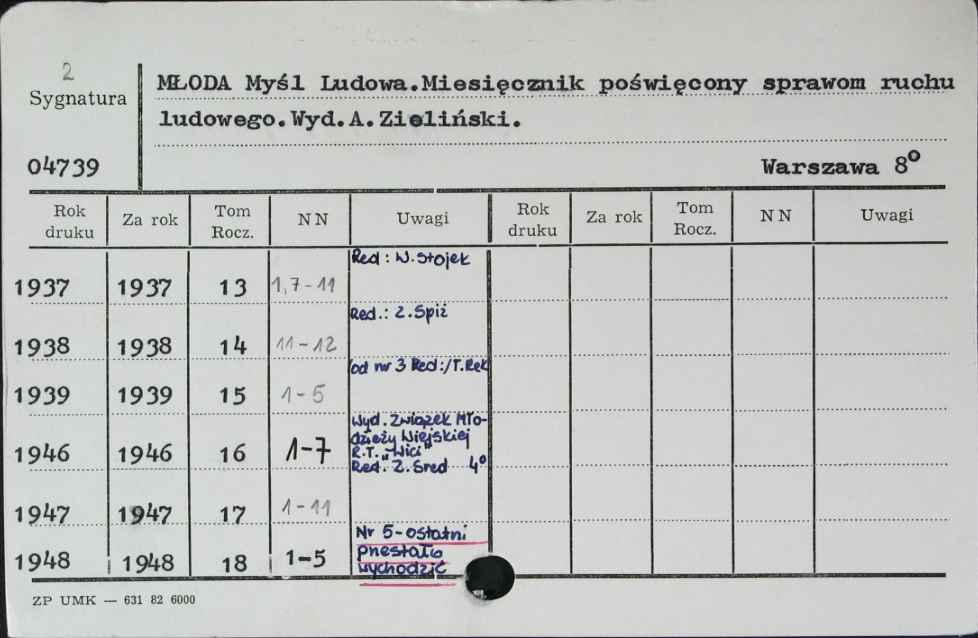 2
Sygnatura
MŁODA Myśl Ludowa.Miesięcznik poświęcony sprawom ruchu
ludowego.Wyd.A.Zieliński.
04739
Warszawa 8°
Rok druku Za rok Tom Rocz. N N Uwagi Rok druku Za rok Tom Rocz. N N Uwagi
Red: W. Stojek
1937 1937 13 1,7-11
Red.: Z. Spiż
1938 1938 14 11-12
od nr 3 Red:/T.Rek
1939 1939 15 1-5
Wyd. Związek Mło-
dzieży Wiejskiej
1946 1946 16 1-7 R.T. „Wici"
Red. Z. Sred 4°
1947 1947 17 1-11
Nr 5-ostatni
przestało
1948 1948 18 1-5 wychodzić
ZP UMK — 631 82 6000